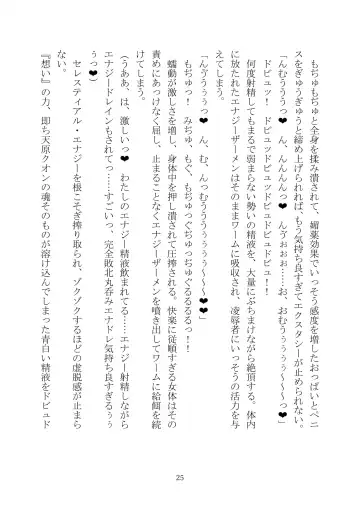 もぢゅもぢゅと全身を揉み潰されて、媚薬効果でいっそう感度を増したおっぱいとペニ
スをぎゅうぎゅうと締め上げられれば、もう気持ち良すぎてエクスタシーが止められない。
「んむぅううっ❤ ん、んんんんっ❤ んづぉぉぉ……お、おむうぅぅぅぅぅ～～～っ❤
ドビュッ！ ドビュッドビュッドビュドビュ！！
何度射精してもまるで弱まらない勢いの精液を、大量にぶちまけながら絶頂する。体内
に放たれたエナジーザーメンはそのままワームに吸収され、凌辱者にいっそうの活力を与
えてしまう。
「んづうぅぅっ❤ ん、む、んっむううぅぅぅぅぅ～～～～❤❤」
もぢゅっ！ みぢゅ、もぐ、もぢゅっぐぢゅっぢゅぐるるるるっ！
蠕動が激しさを増し、身体中を押し潰されて圧搾される。快楽に従順すぎる女体はその
責めにあっけなく屈し、止まることなくエナジーザーメンを噴き出してワームに給餌を続
けてしまう。
（うああ、は、激しいっ❤ わたしのエナジー精液飲まれてる……エナジー射精しながら
エナジードレインもされてっ……すごいっ、完全敗北丸呑みエナドレ気持ち良すぎるぅぅ
ぅっ❤）
セレスティアル・エナジーを根こそぎ搾り取られ、ゾクゾクするほどの虚脱感が止まら
ない。
『想い』の力、即ち天原クオンの魂そのものが溶け込んでしまった青白い精液をドビュド
25